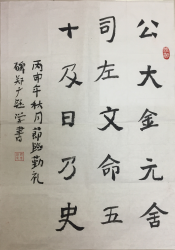 公大金元舍
司左文命五
十及日乃史
丙申年秋月節臨勤礼
碑 学書